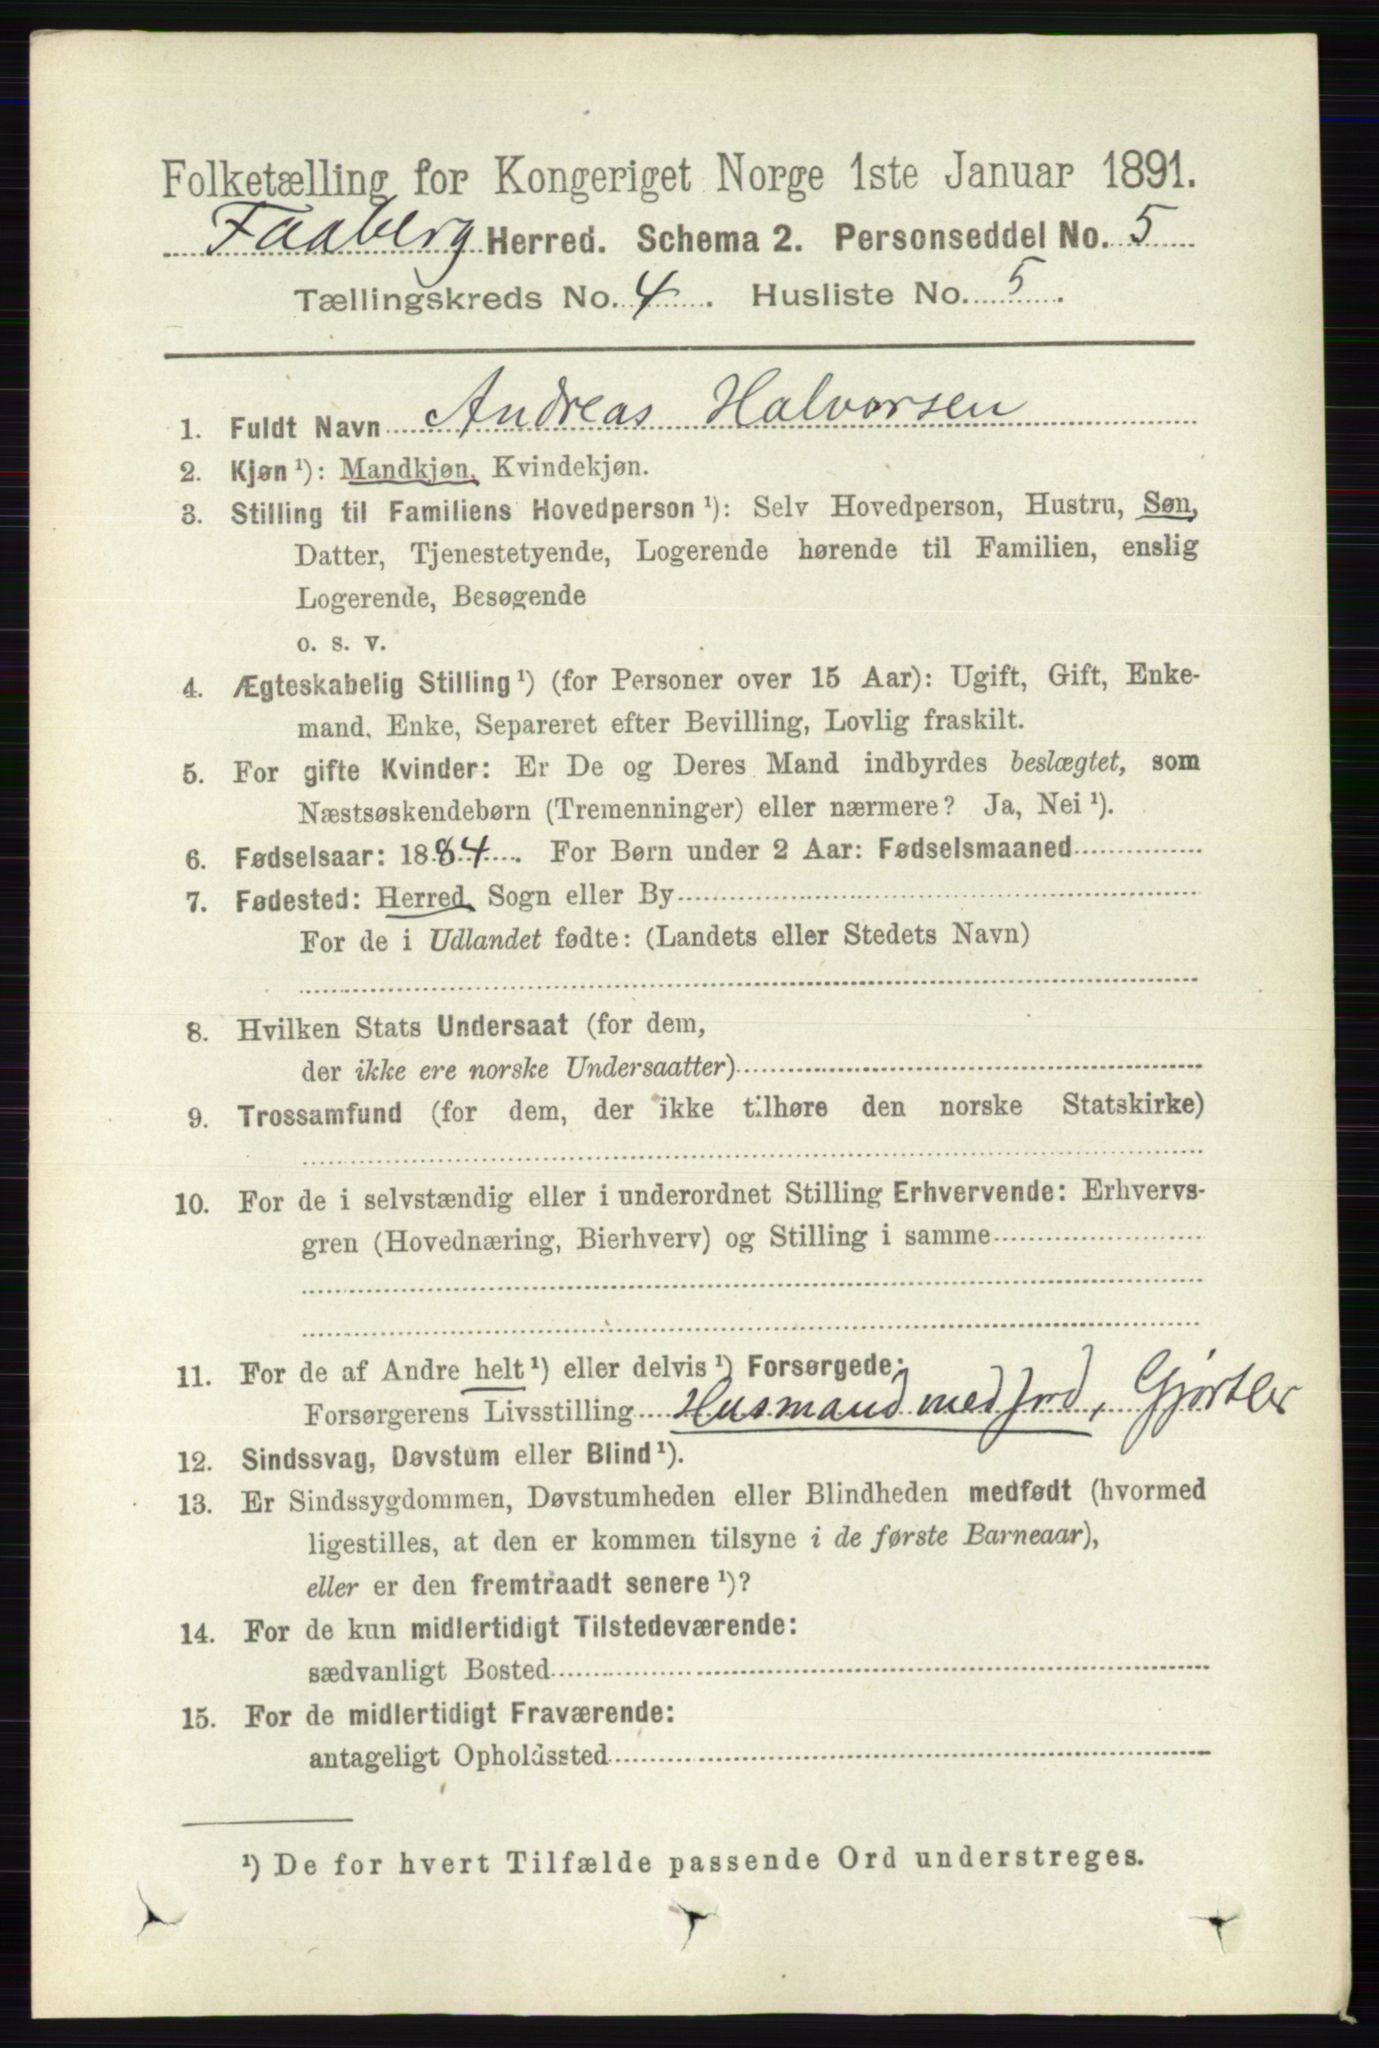 Folketælling for Kongeriget Norge 1ste Januar 1891.
Faaberg Herred. Schema 2. Personseddel No. 5
Tællingskreds No. 4. Husliste No. 5.
1. Fuldt Navn Andreas Halvorsen
2. Kjøn ¹): Mandkjøn, Kvindekjøn.
3. Stilling til Familiens Hovedperson ¹): Selv Hovedperson, Hustru, Søn,
Datter, Tjenestetyende, Logerende hørende til Familien, enslig
Logerende, Besøgende
o. s. v.
4. Ægteskabelig Stilling ¹) (for Personer over 15 Aar): Ugift, Gift, Enke-
mand, Enke, Separeret efter Bevilling, Lovlig fraskilt.
5. For gifte Kvinder: Er De og Deres Mand indbyrdes beslægtet, som
Næstsøskendebørn (Tremenninger) eller nærmere? Ja, Nei ¹).
6. Fødselsaar: 1884. For Børn under 2 Aar: Fødselsmaaned
7. Fødested: Herred, Sogn eller By
For de i Udlandet fødte: (Landets eller Stedets Navn)
8. Hvilken Stats Undersaat (for dem,
der ikke ere norske Undersaatter)
9. Trossamfund (for dem, der ikke tilhøre den norske Statskirke)
10. For de i selvstændig eller i underordnet Stilling Erhvervende: Erhvervs-
gren (Hovednæring, Bierhverv) og Stilling i samme
11. For de af Andre helt ¹) eller delvis ¹) Forsørgede:
Forsørgerens Livsstilling Husmand med Jord, Gjørtler
12. Sindssvag, Døvstum eller Blind ¹).
13. Er Sindssygdommen, Døvstumheden eller Blindheden medfødt (hvormed
ligestilles, at den er kommen tilsyne i de første Barneaar),
eller er den fremtraadt senere ¹)?
14. For de kun midlertidigt Tilstedeværende:
sædvanligt Bosted
15. For de midlertidigt Fraværende:
antageligt Opholdssted
¹) De for hvert Tilfælde passende Ord understreges.